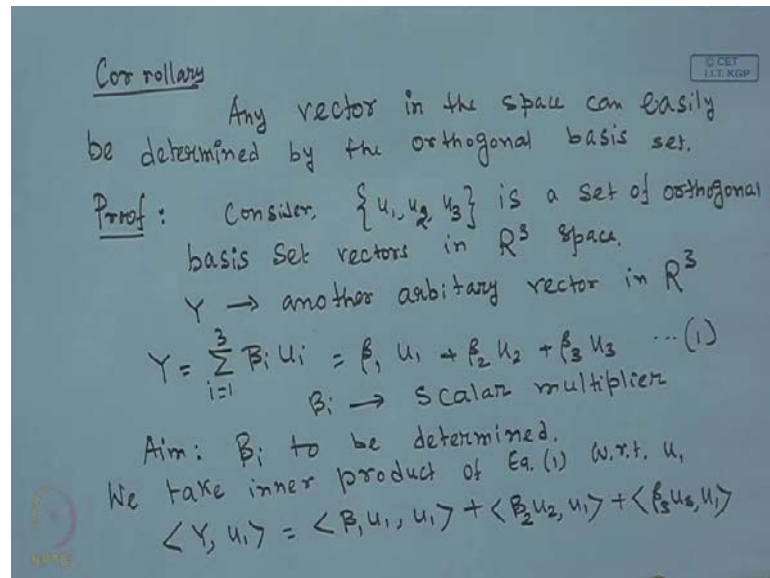 Corrollary
© CET
I.I.T. KGP
Any vector in the space can easily
be determined by the orthogonal basis set.
Proof : Consider, {u₁, u₂ u₃} is a set of orthogonal
basis set vectors in R³ space.
Y → another arbitary vector in R³
Y = ∑_{i=1}^{3} βᵢ uᵢ = β₁ u₁ + β₂ u₂ + β₃ u₃ ...(1)
βᵢ → scalar multiplier
Aim : βᵢ to be determined.
We take inner product of Eq. (1) w.r.t. u₁
<Y, u₁> = <β₁u₁, u₁> + <β₂u₂, u₁> + <β₃u₃, u₁>
NPTEL